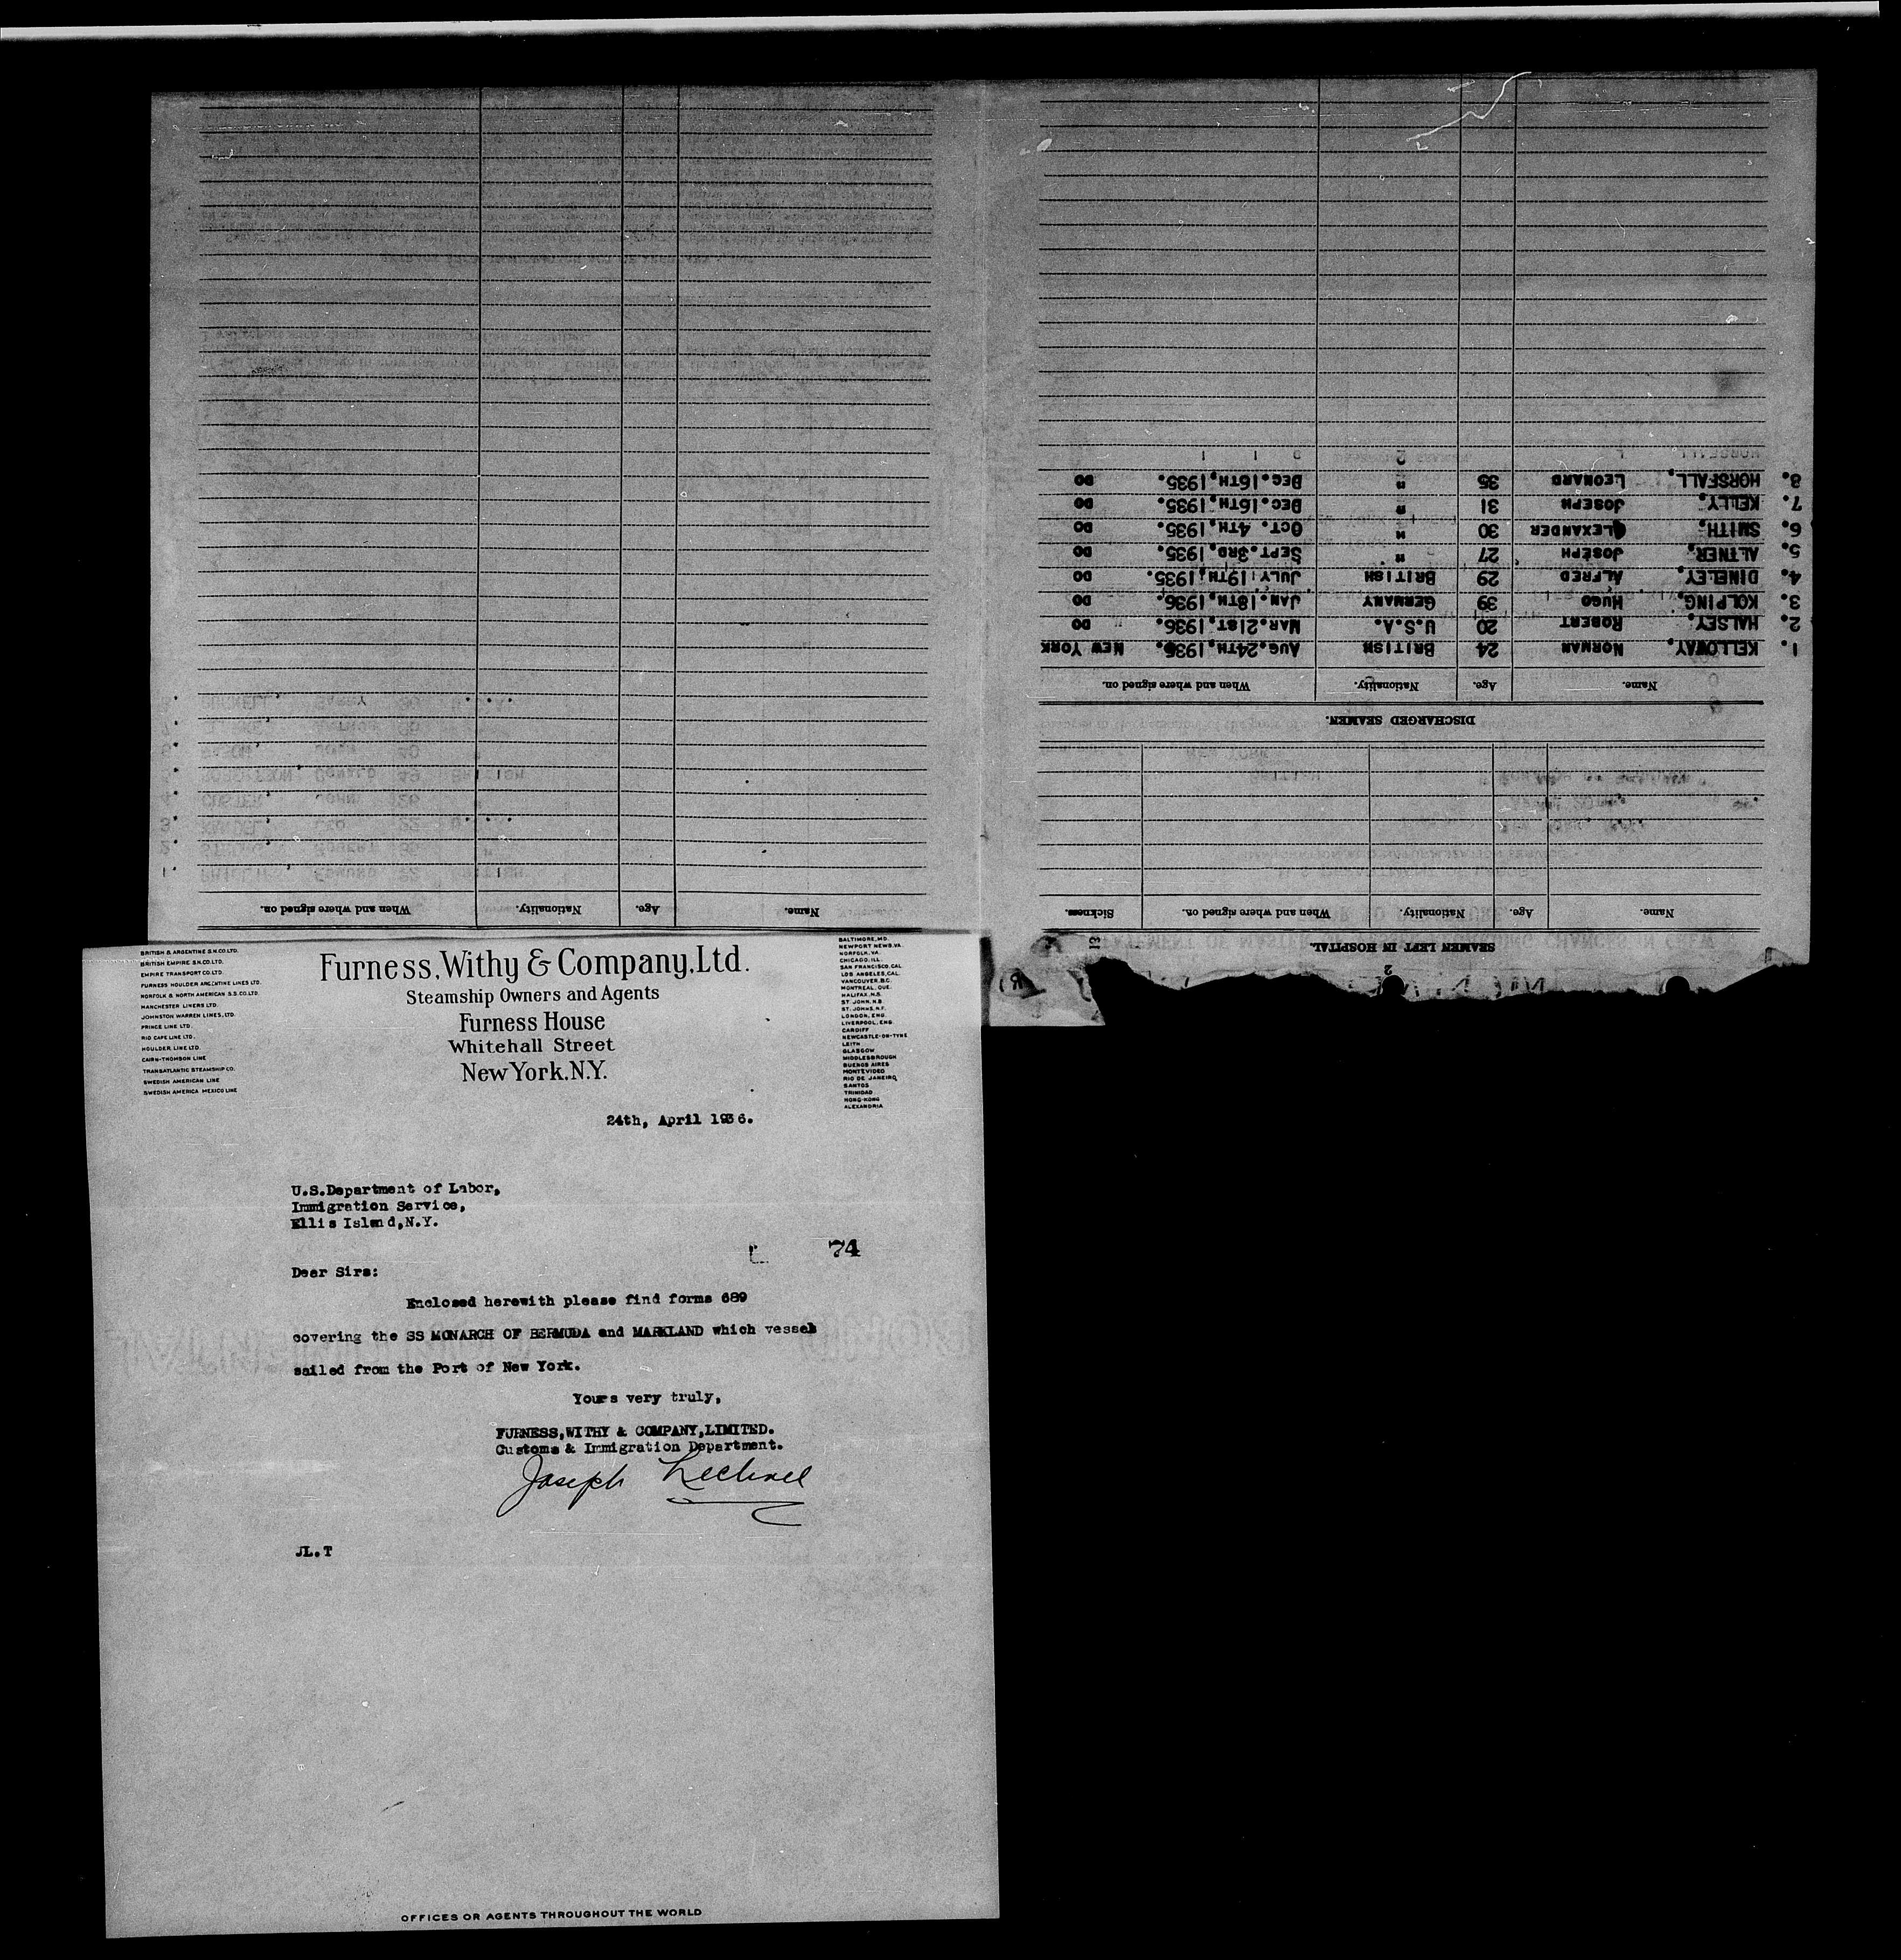 SEAMEN LEFT IN HOSPITAL.
Name. Age. Nationality. When and where signed on. Sickness.
DISCHARGED SEAMEN.
Name. Age. Nationality. When and where signed on.
1. KELLOWAY. NORMAN 24 BRITISH AUG. 24TH, 1935. NEW YORK
2. HALSEY. ROBERT 20 U.S.A. MAR. 21ST, 1936. DO
3. KOLPING. HUGO 39 GERMANY JAN. 18TH, 1936. DO
4. DINELEY. ALFRED 29 BRITISH JULY 19TH, 1935. DO
5. ALTNER. JOSEPH 27 " SEPT. 3RD, 1935. DO
6. SMITH. ALEXANDER 30 " OCT. 4TH, 1935. DO
7. KELLY. JOSEPH 31 " DEC. 16TH, 1935. DO
8. HORSFALL. LEONARD 35 " DEC. 16TH, 1935. DO
Name. Age. Nationality. When and where signed on.
BRITISH & ARGENTINE S.N.CO.LTD.
BRITISH EMPIRE S.N.CO.LTD.
EMPIRE TRANSPORT CO.LTD.
FURNESS HOULDER ARGENTINE LINES LTD.
NORFOLK & NORTH AMERICAN S.S.CO.LTD.
MANCHESTER LINERS LTD.
JOHNSTON WARREN LINES, LTD.
PRINCE LINE LTD.
RIO CAPE LINE LTD.
HOULDER LINE LTD.
CAIRN-THOMSON LINE
TRANSATLANTIC STEAMSHIP CO.
SWEDISH AMERICAN LINE
SWEDISH AMERICA MEXICO LINE
Furness, Withy & Company, Ltd.
Steamship Owners and Agents
Furness House
Whitehall Street
New York, N.Y.
BALTIMORE, MD.
NEWPORT NEWS, VA.
NORFOLK, VA.
CHICAGO, ILL.
SAN FRANCISCO, CAL.
LOS ANGELES, CAL.
VANCOUVER, B.C.
MONTREAL, QUE.
HALIFAX, N.S.
ST. JOHN, N.B.
ST. JOHNS, N.F.
LONDON, ENG.
LIVERPOOL, ENG.
CARDIFF
NEWCASTLE-ON-TYNE
LEITH
GLASGOW
MIDDLESBROUGH
BUENOS AIRES
MONTEVIDEO
RIO DE JANEIRO
SANTOS
TRINIDAD
HONG-KONG
ALEXANDRIA
24th, April 1936.
U.S.Department of Labor,
Immigration Service,
Ellis Island,N.Y.
74
Dear Sirs:
Enclosed herewith please find forms 689
covering the SS MONARCH OF BERMUDA and MARKLAND which vessels
sailed from the Port of New York.
Yours very truly,
FURNESS,WITHY & COMPANY,LIMITED.
Customs & Immigration Department.
Joseph
JL.T
OFFICES OR AGENTS THROUGHOUT THE WORLD